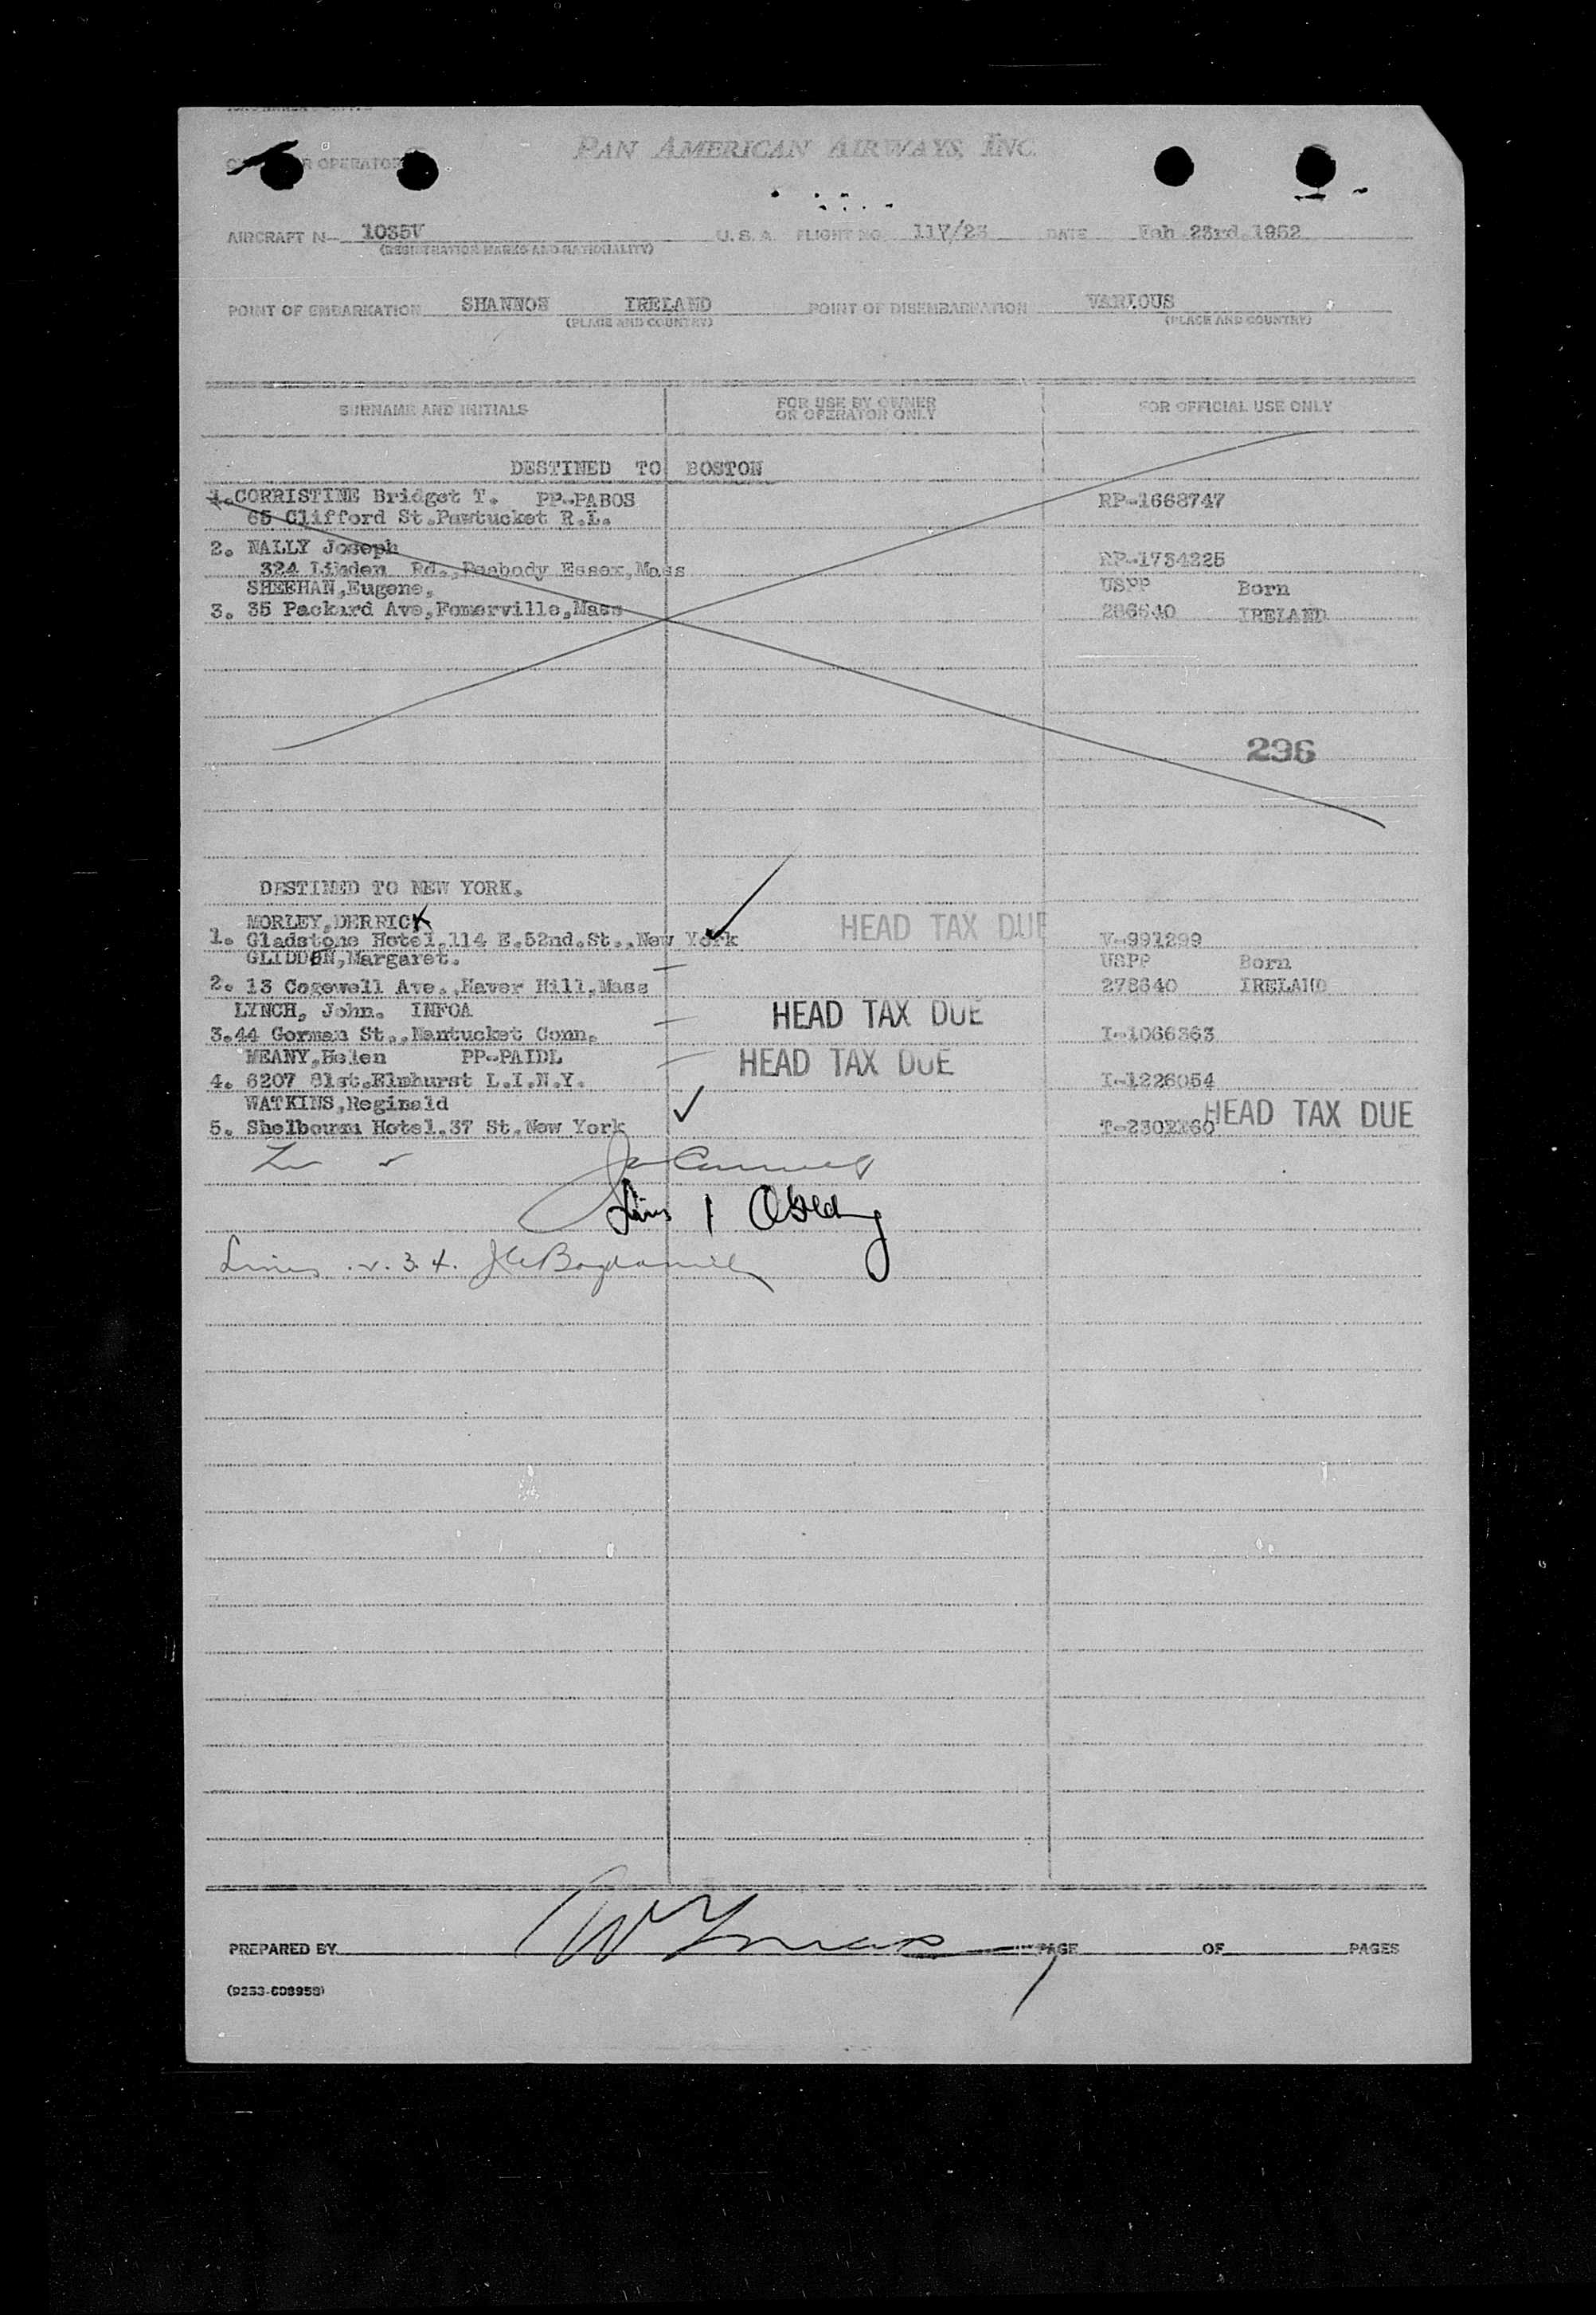 OPERATOR
PAN AMERICAN AIRWAYS, INC.
AIRCRAFT N- 1035V U.S.A. FLIGHT NO. 117/23 DATE Feb 23rd 1952
(REGISTRATION MARKS AND NATIONALITY)
POINT OF EMBARKATION SHANNON IRELAND POINT OF DISEMBARKATION VARIOUS
(PLACE AND COUNTRY) (PLACE AND COUNTRY)
SURNAME AND INITIALS FOR USE BY OWNER OR OPERATOR ONLY FOR OFFICIAL USE ONLY
DESTINED TO BOSTON
1. CORRISTINE Bridget T. PP-PABOS RP-1668747
65 Clifford St.Pawtucket R.I.
2. NALLY Joseph RP-1734225
324 Linden Rd.,Peabody Essex,Mass
SHEEHAN,Eugene, USPP Born
3. 35 Packard Ave,Fomerville,Mass 286640 IRELAND
296
DESTINED TO NEW YORK.
MORLEY,DERRICK HEAD TAX DUE
1. Gladstone Hotel,114 E.52nd.St.,New York V-991299
GLIDDEN,Margaret. USPP Born
2. 13 Cogewell Ave.,Haver Hill,Mass 278640 IRELAND
LYNCH, John. INFOA HEAD TAX DUE
3.44 Gorman St.,Nantucket Conn. I-1066363
MEANY,Helen PP-PAIDL HEAD TAX DUE
4. 6207 81st.Elmhurst L.I.N.Y. I-1226054
WATKINS,Reginald HEAD TAX DUE
5. Shelbourn Hotel.37 St.New York
Lines 3. 4.
PREPARED BY PAGE OF PAGES